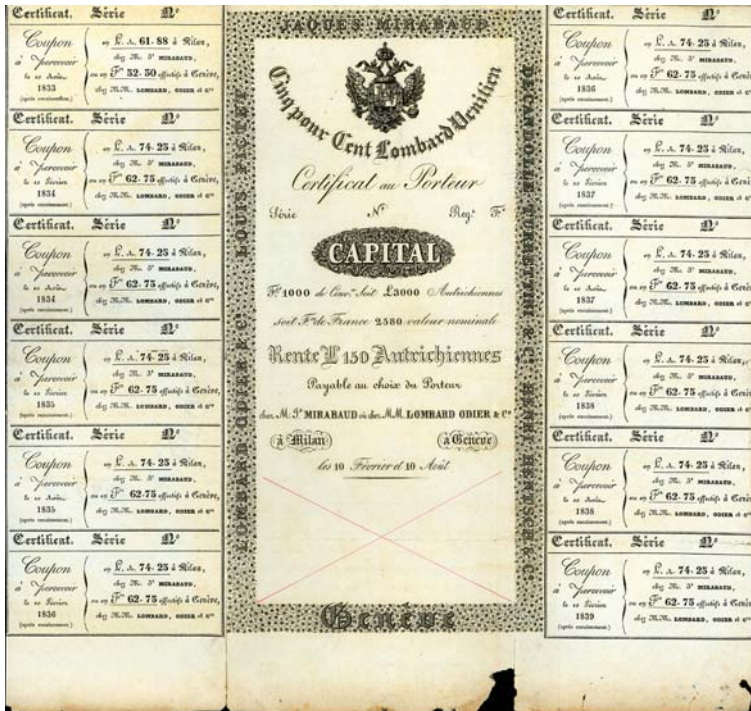 Certificat. Série Nº
Coupon
à Percevoir
le 10 Août
1833
en L. A. 61-88 à Milan,
chez Mr. Jˢ MIRABAUD,
ou en Fˢ 52-50 effectifs à Genève,
chez M.M. LOMBARD, ODIER et Cᵉ
Certificat. Série Nº
Coupon
à Percevoir
le 10 Février
1834
en L. A. 74-25 à Milan,
chez Mr. Jˢ MIRABAUD,
ou en Fˢ 62-75 effectifs à Genève,
chez M.M. LOMBARD, ODIER et Cᵉ
Certificat. Série Nº
Coupon
à Percevoir
le 10 Août
1834
en L. A. 74-25 à Milan,
chez Mr. Jˢ MIRABAUD,
ou en Fˢ 62-75 effectifs à Genève,
chez M.M. LOMBARD, ODIER et Cᵉ
Certificat. Série Nº
Coupon
à Percevoir
le 10 Février
1835
en L. A. 74-25 à Milan,
chez Mr. Jˢ MIRABAUD,
ou en Fˢ 62-75 effectifs à Genève,
chez M.M. LOMBARD, ODIER et Cᵉ
Certificat. Série Nº
Coupon
à Percevoir
le 10 Août
1835
en L. A. 74-25 à Milan,
chez Mr. Jˢ MIRABAUD,
ou en Fˢ 62-75 effectifs à Genève,
chez M.M. LOMBARD, ODIER et Cᵉ
Certificat. Série Nº
Coupon
à Percevoir
le 10 Février
1836
en L. A. 74-25 à Milan,
chez Mr. Jˢ MIRABAUD,
ou en Fˢ 62-75 effectifs à Genève,
chez M.M. LOMBARD, ODIER et Cᵉ
JAQUES MIRABAUD
LOMBARD ODIER & Cᵉ LOUIS PICTET
DECANDOLLE TURRETTINI & Cᵉ HENRI HENTSCH & Cᵉ
GENÈVE
Cinq pour Cent Lombard Vénitien
Certificat au Porteur
Série Nº Regᵉ Fº
CAPITAL
Fˢ 1000 de Conv.ⁿ Soit £3000 Autrichiennes
soit Fˢ de France 2580 valeur nominale
Rente £ 150 Autrichiennes
Payable au choix du Porteur
chez M. Jˢ MIRABAUD ou chez M.M. LOMBARD ODIER & Cᵉ
à Milan à Genève
les 10 Février et 10 Août
Certificat. Série Nº
Coupon
à Percevoir
le 10 Août
1836
en L. A. 74-25 à Milan,
chez Mr. Jˢ MIRABAUD,
ou en Fˢ 62-75 effectifs à Genève,
chez M.M. LOMBARD, ODIER et Cᵉ
Certificat. Série Nº
Coupon
à Percevoir
le 10 Février
1837
en L. A. 74-25 à Milan,
chez Mr. Jˢ MIRABAUD,
ou en Fˢ 62-75 effectifs à Genève,
chez M.M. LOMBARD, ODIER et Cᵉ
Certificat. Série Nº
Coupon
à Percevoir
le 10 Août
1837
en L. A. 74-25 à Milan,
chez Mr. Jˢ MIRABAUD,
ou en Fˢ 62-75 effectifs à Genève,
chez M.M. LOMBARD, ODIER et Cᵉ
Certificat. Série Nº
Coupon
à Percevoir
le 10 Février
1838
en L. A. 74-25 à Milan,
chez Mr. Jˢ MIRABAUD,
ou en Fˢ 62-75 effectifs à Genève,
chez M.M. LOMBARD, ODIER et Cᵉ
Certificat. Série Nº
Coupon
à Percevoir
le 10 Août
1838
en L. A. 74-25 à Milan,
chez Mr. Jˢ MIRABAUD,
ou en Fˢ 62-75 effectifs à Genève,
chez M.M. LOMBARD, ODIER et Cᵉ
Certificat. Série Nº
Coupon
à Percevoir
le 10 Février
1839
en L. A. 74-25 à Milan,
chez Mr. Jˢ MIRABAUD,
ou en Fˢ 62-75 effectifs à Genève,
chez M.M. LOMBARD, ODIER et Cᵉ